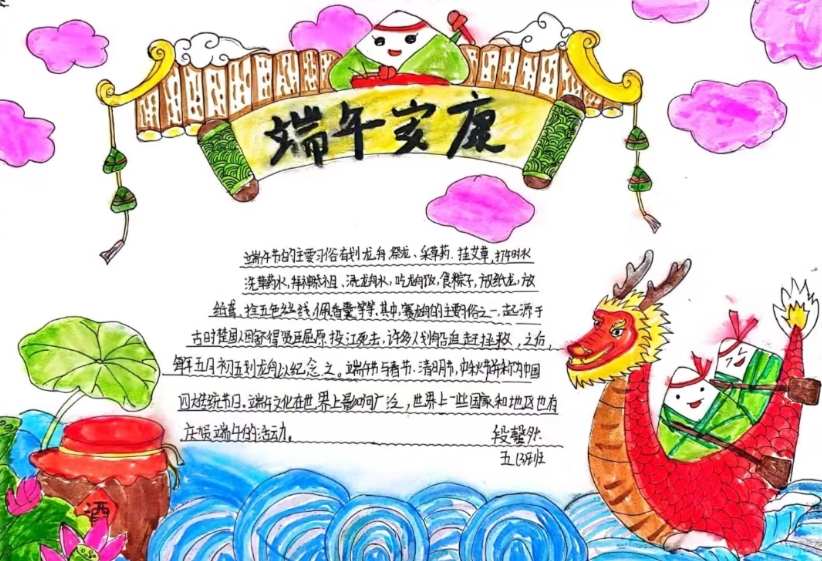 端午安康
端午节的主要习俗有划龙舟、祭龙、采草药、挂艾草、打午时水
洗草药水、拜神祭祖、洗龙舟水、吃龙舟饭、食粽子、放纸龙、放
纸鸢、拴五色丝线、佩香囊等等。其中,赛龙舟的主要俗之一,起源于
古时楚国人因舍得贤臣屈原投江死去,许多人划船追赶拯救,之后,
每年五月初五划龙舟以纪念之。端午节与春节、清明节、中秋节并称为中国
四大传统节日。端午文化在世界上影响广泛,世界上一些国家和地区也有
庆贺端午的活动。 段馨
五(3)班
酒